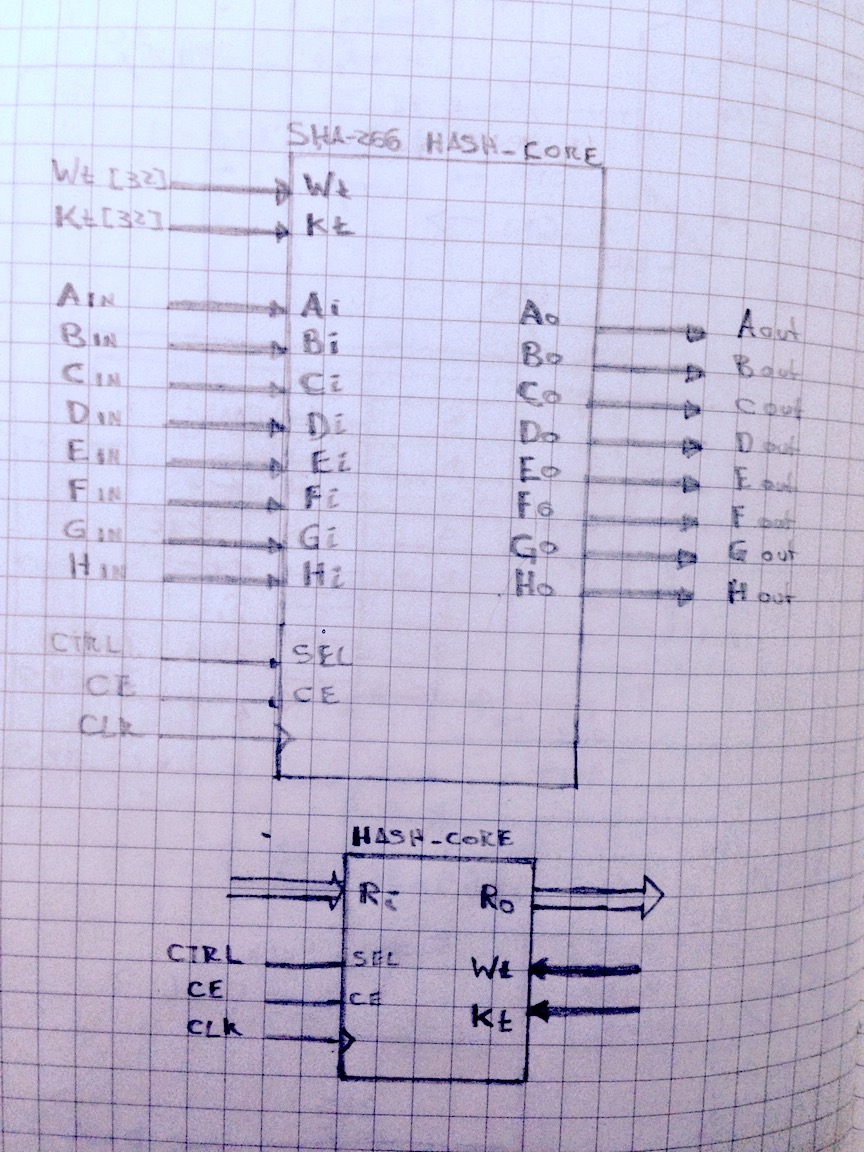 SHA-256 HASH_CORE
Wt [32] Wt
Kt [32] Kt
AIN Ai Ao Aout
BIN Bi Bo Bout
CIN Ci Co Cout
DIN Di Do Dout
EIN Ei Eo Eout
FIN Fi Fo Fout
GIN Gi Go Gout
HIN Hi Ho Hout
CTRL SEL
CE CE
CLK
HASH_CORE
Ri Ro
CTRL SEL Wt
CE CE Kt
CLK